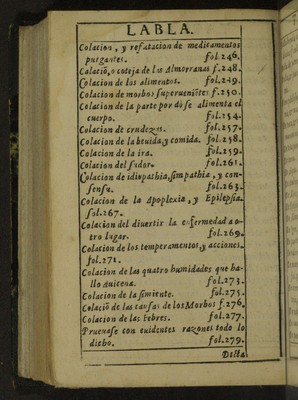 LABLA.
Colacion, y refutacion de medicamentos
purgantes. fol.246.
Calació, o coteja de las Almorranas f.248.
Colacion de los alimentos. fol.249.
Colacion de morbos superueniẽtes f.250.
Colacion de la parte por dõse alimenta el
cuerpo. fol.254.
Colacion de crudezas. fol.257.
Colacion de la beuida, y comida. fol.258.
Colacion de la ira. fol.259.
Colacion del sudor. fol.261.
Colacion de idiopathia, simpathia, y con-
sensu. fol.263.
Colacion de la Apoplexia, y Epilepsia.
fol.267.
Colacion del diuertir la enfermedad a o-
tro lugar. fol.269.
Colacion de los temperamentos, y acciones.
fol.271.
Colacion de las quatro humidades que ha-
llo Auicena. fol.273.
Colacion de la simiente. fol.275.
Colaciõ de las causas de los Morbos f.276.
Colacion de las febres. fol.277.
Prueuase con euidentes razones todo lo
dicho. fol.279.